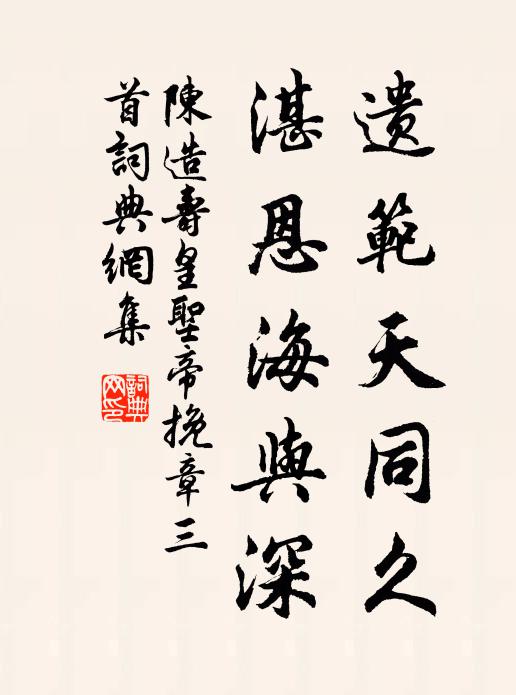 遗範天同久
湛恩海與深
陳造壽皇聖帝挽章三
首詞典網集
詞典
网印